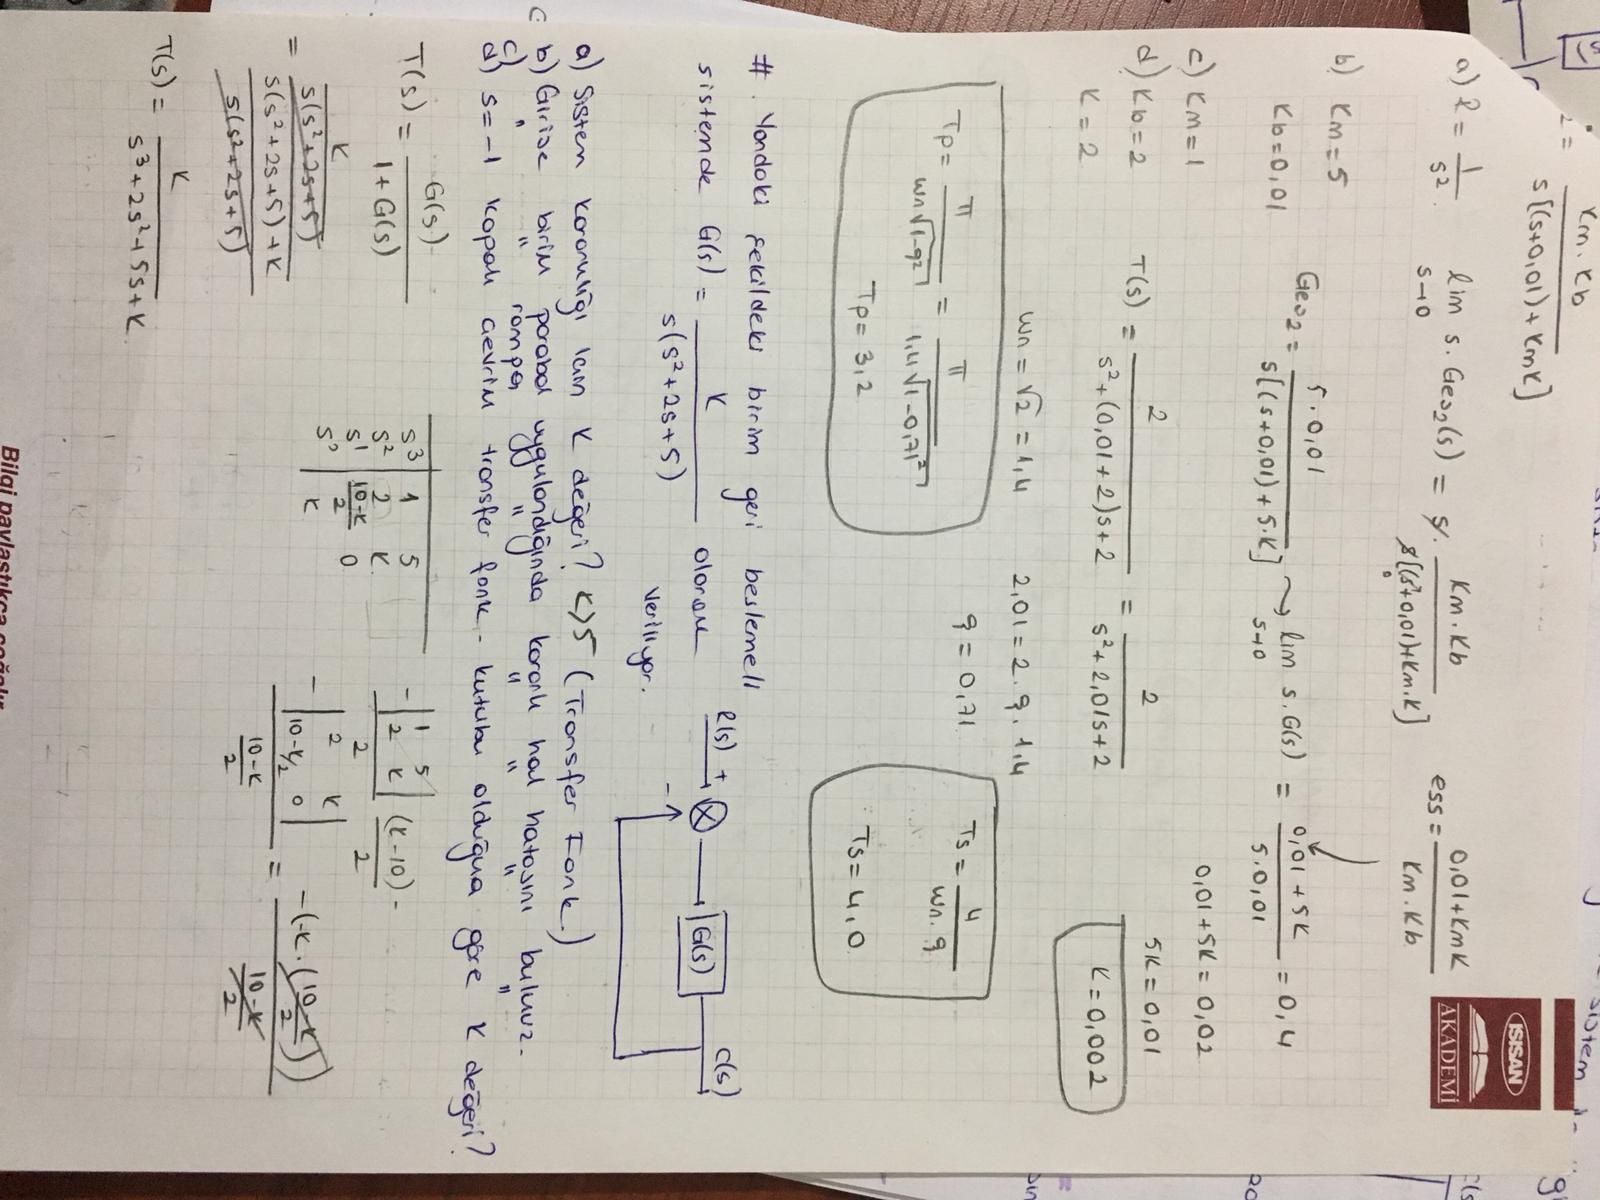 Km.Kb
2 = ─────
s[(s+0,01)+KmK]
ISISAN
AKADEMİ
a) R = 1/s². lim s→0 s.Ges2(s) = s. Km.Kb / s[(s+0,01)+Km.K] ess = 0,01+KmK / Km.Kb
b) Km=5
Kb=0,01
Ges2 = 5.0,01 / s[(s+0,01)+5.K] → lim s→0 s.G(s) = 0,01+5K / 5.0,01 = 0,4
0,01+5K = 0,02
5K = 0,01
K=0,002
c) Km=1
d) Kb=2
K=2
T(s) = 2 / s²+(0,01+2)s+2 = 2 / s²+2,01s+2
wn = √2 = 1,4 2,01 = 2.ϱ.1,4
ϱ = 0,71
Tp = π / wn√1-ϱ² = π / 1,4√1-0,71²
Tp= 3,2
Ts = 4 / wn.ϱ
Ts= 4,0
# Yandaki şekildeki birim geri beslemeli
sistemde G(s) = K / s(s²+2s+5) olarak
veriliyor.
R(s) + - G(s) C(s)
a) Sistem kararlılığı için K değeri? K>5 (Transfer Fonk.)
b) Girişe birim parabol uygulandığında kararlı hal hatasını bulunuz.
c) " " rampa " " " " "
d) s=-1 kapalı çevrim transfer fonk. kutubu olduğuna göre K değeri?
T(s) = G(s) / 1+G(s)
= K / s(s²+2s+5) / s(s²+2s+5)+K / s(s²+2s+5)
T(s) = K / s³+2s²+5s+K
s³ 1 5
s² 2 K
s¹ 10-K/2 0
s⁰ K
-|1 5 2 K| / 2 (K-10)- / 2
-|2 K 10-K/2 0| / 10-K/2 = -(-K.(10-K/2)) / 10-K/2
Bilgi paylaştıkça çoğalır